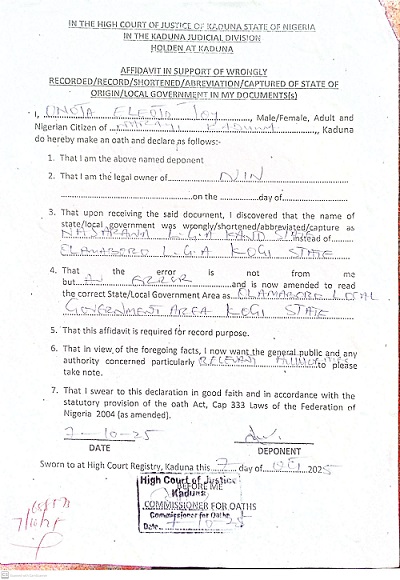 IN THE HIGH COURT OF JUSTICE OF KADUNA STATE OF NIGERIA
IN THE KADUNA JUDICIAL DIVISION
HOLDEN AT KADUNA
AFFIDAVIT IN SUPPORT OF WRONGLY
RECORDED/RECORD/SHORTENED/ABREVIATION/CAPTURED OF STATE OF
ORIGIN/LOCAL GOVERNMENT IN MY DOCUMENTS(s)
I, Joy, Male/Female, Adult and
Nigerian Citizen of Kaduna, Kaduna
do hereby make an oath and declare as follows:-
1. That I am the above named deponent
2. That I am the legal owner of NIN
on the day of
3. That upon receiving the said document, I discovered that the name of
state/local government was wrongly/shortened/abbreviated/capture as
NASARAWA L.G.A KANO STATE instead of
OLAMABORO L.G.A KOGI STATE
4. That the error is not from me
but AN ERROR and is now amended to read
the correct State/Local Government Area as OLAMABORO LOCAL
GOVERNMENT AREA KOGI STATE
5. That this affidavit is required for record purpose.
6. That in view of the foregoing facts, I now want the general public and any
authority concerned particularly RELEVANT AUTHORITIES to please
take note.
7. That I swear to this declaration in good faith and in accordance with the
statutory provision of the oath Act, Cap 333 Laws of the Federation of
Nigeria 2004 [as amended].
7-10-25
DATE DEPONENT
Sworn to at High Court Registry, Kaduna this 7 day of Oct 2025
High Court of Justice
BEFORE ME
Kaduna
COMMISSIONER FOR OATHS
Commissioner for Oaths
Date 7-10-25